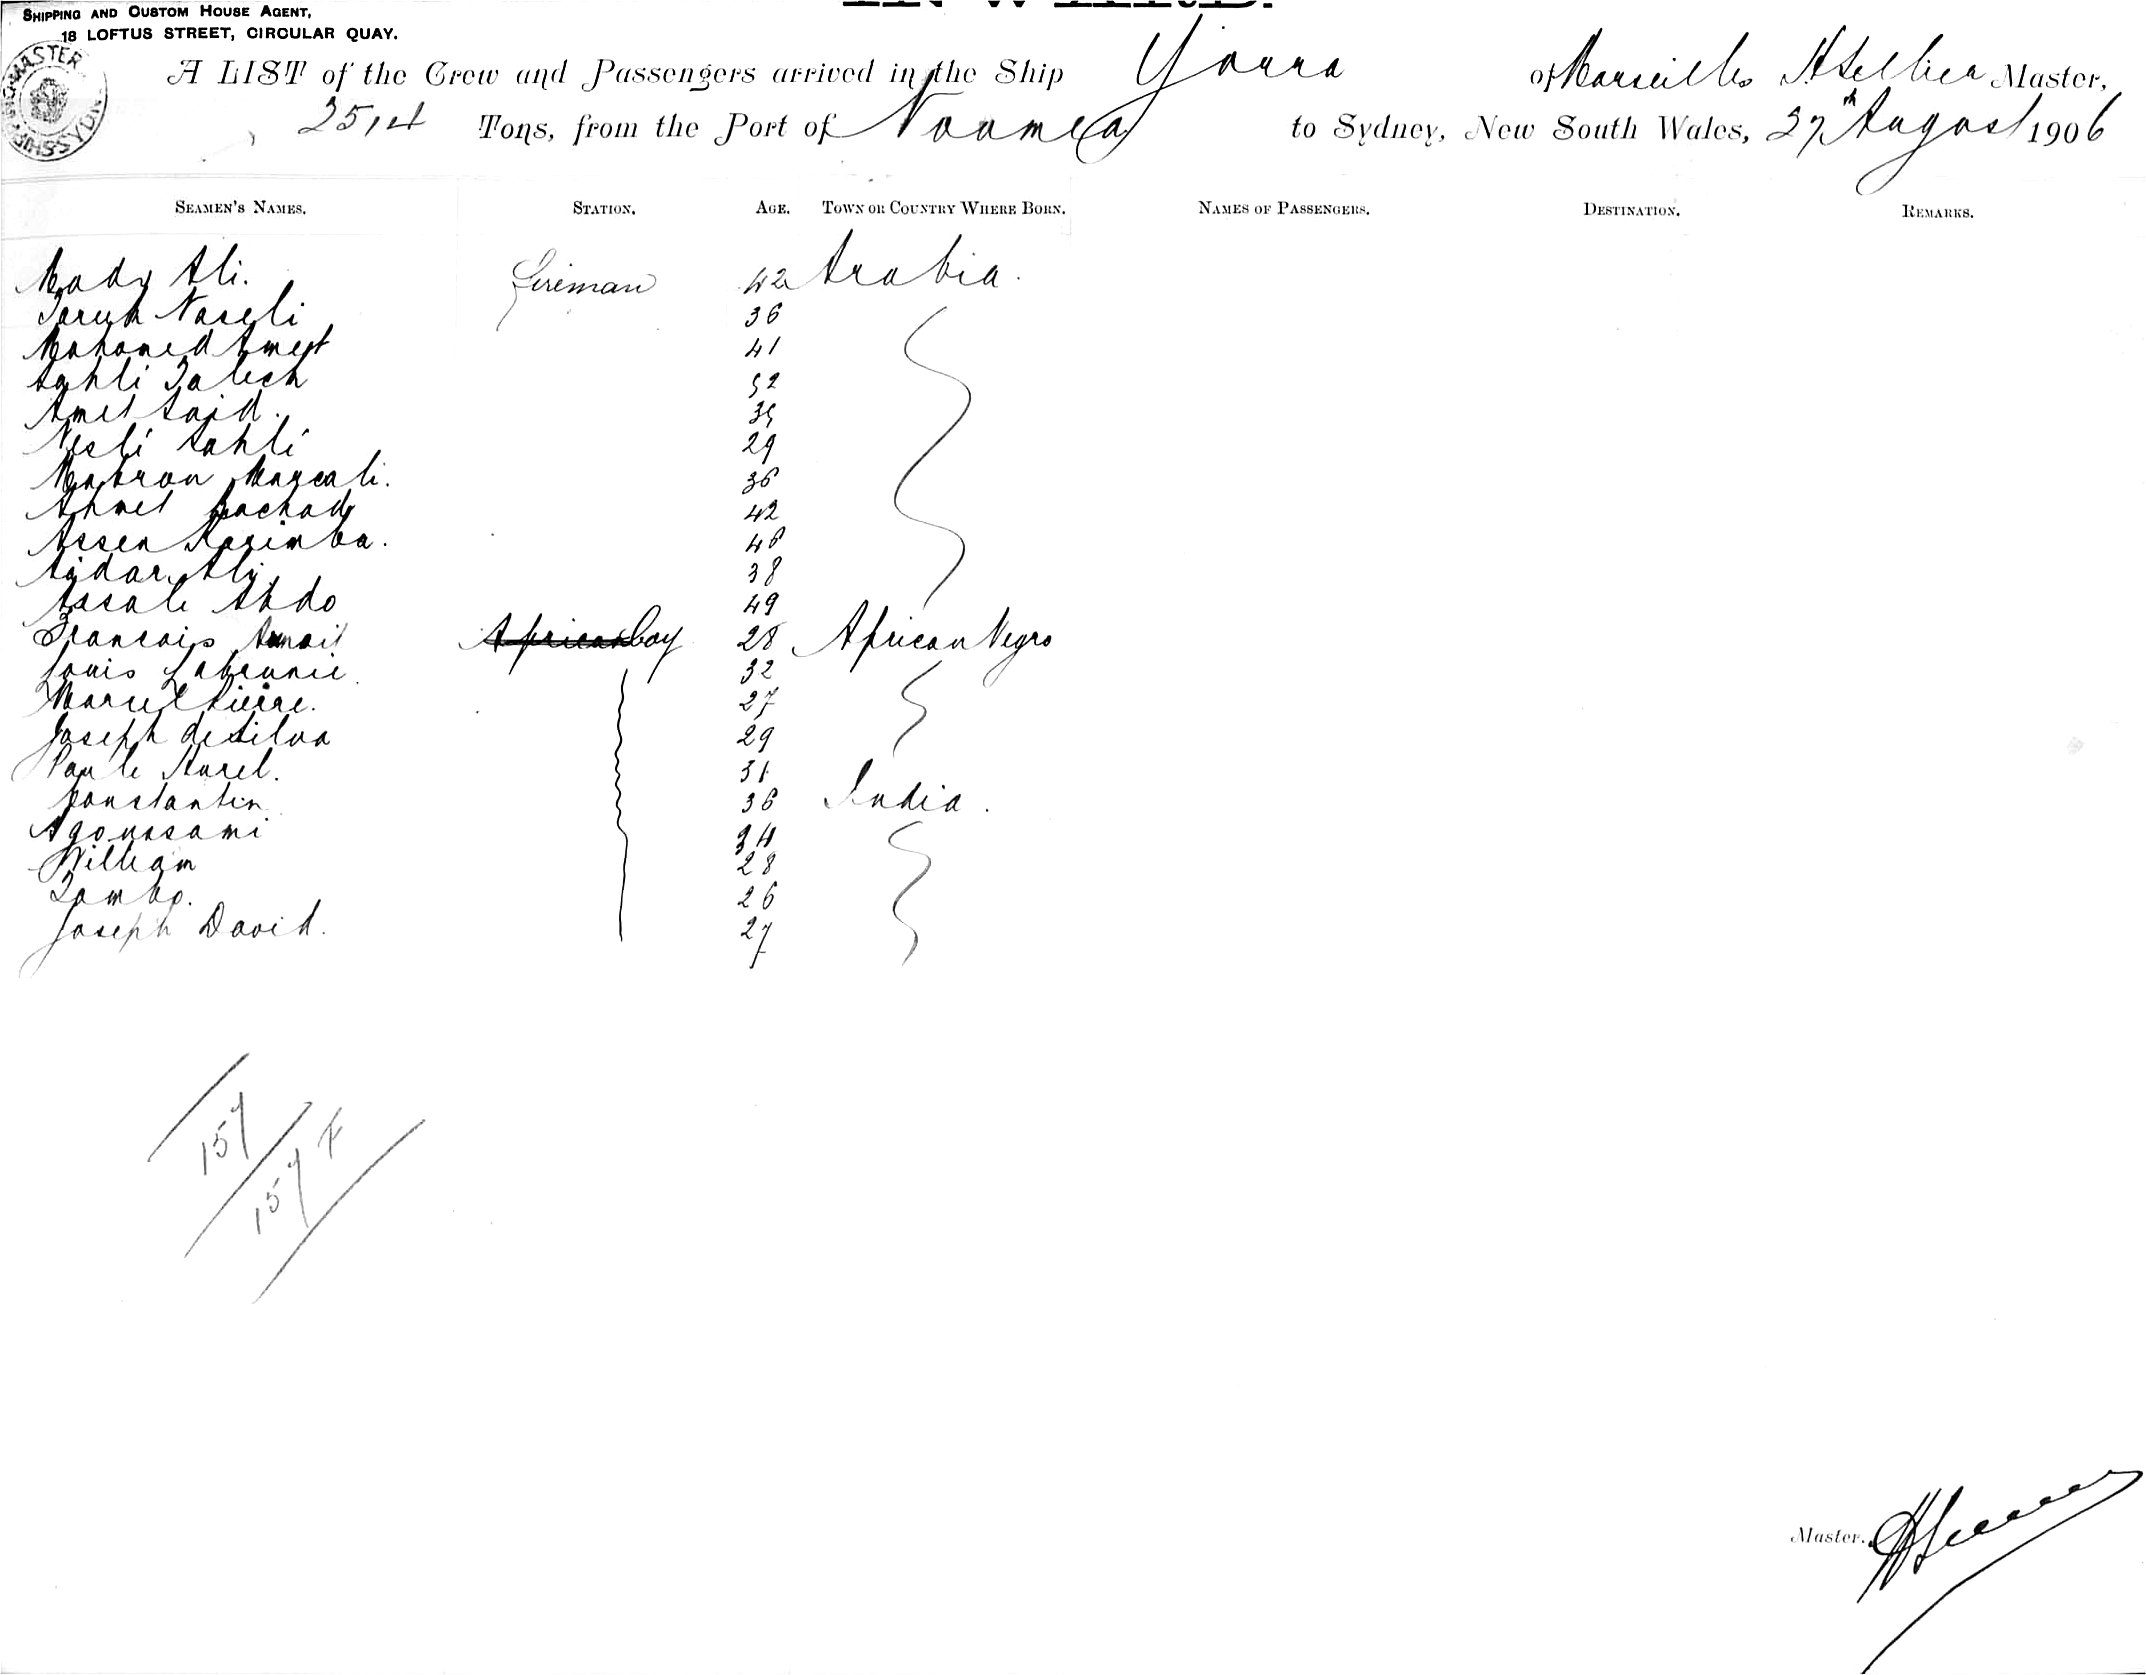 SHIPPING AND CUSTOM HOUSE AGENT,
18 LOFTUS STREET, CIRCULAR QUAY.
A LIST of the Crew and Passengers arrived in the Ship Yarra of Marseilles Master,
2514 Tons, from the Port of Noumea to Sydney, New South Wales, 27th August 1906
SEAMEN'S NAMES. STATION. AGE. TOWN OR COUNTRY WHERE BORN. NAMES OF PASSENGERS. DESTINATION. REMARKS.
Mady Ali. fireman 42 Arabia.
Naseli 36
Mohamed 41
Sahli Salech 52
Amet Said. 35
Nesli Sahli 29
36
Ahmet 42
Assen Karimba. 46
Aidar Aly. 38
Assale Abdo 49
Francois African boy 28 African Negro
Louis 32
Marcel Pierre. 27
Joseph de Silva 29
Paule Aurel. 31
Constantin 36 India.
Agoussami 34
William 28
Sambo. 26
Joseph David. 27
157
157 F
Master.